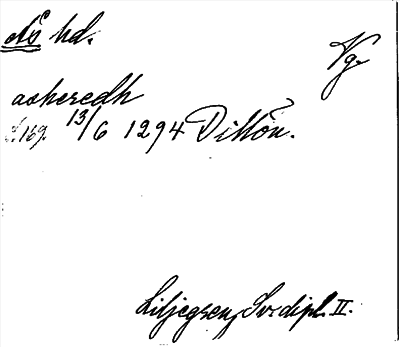 Ås hd. Vg.
askeredh
s. 169. 13/6 1294 Dillön.
Liljegren, Sv. dipl. II.